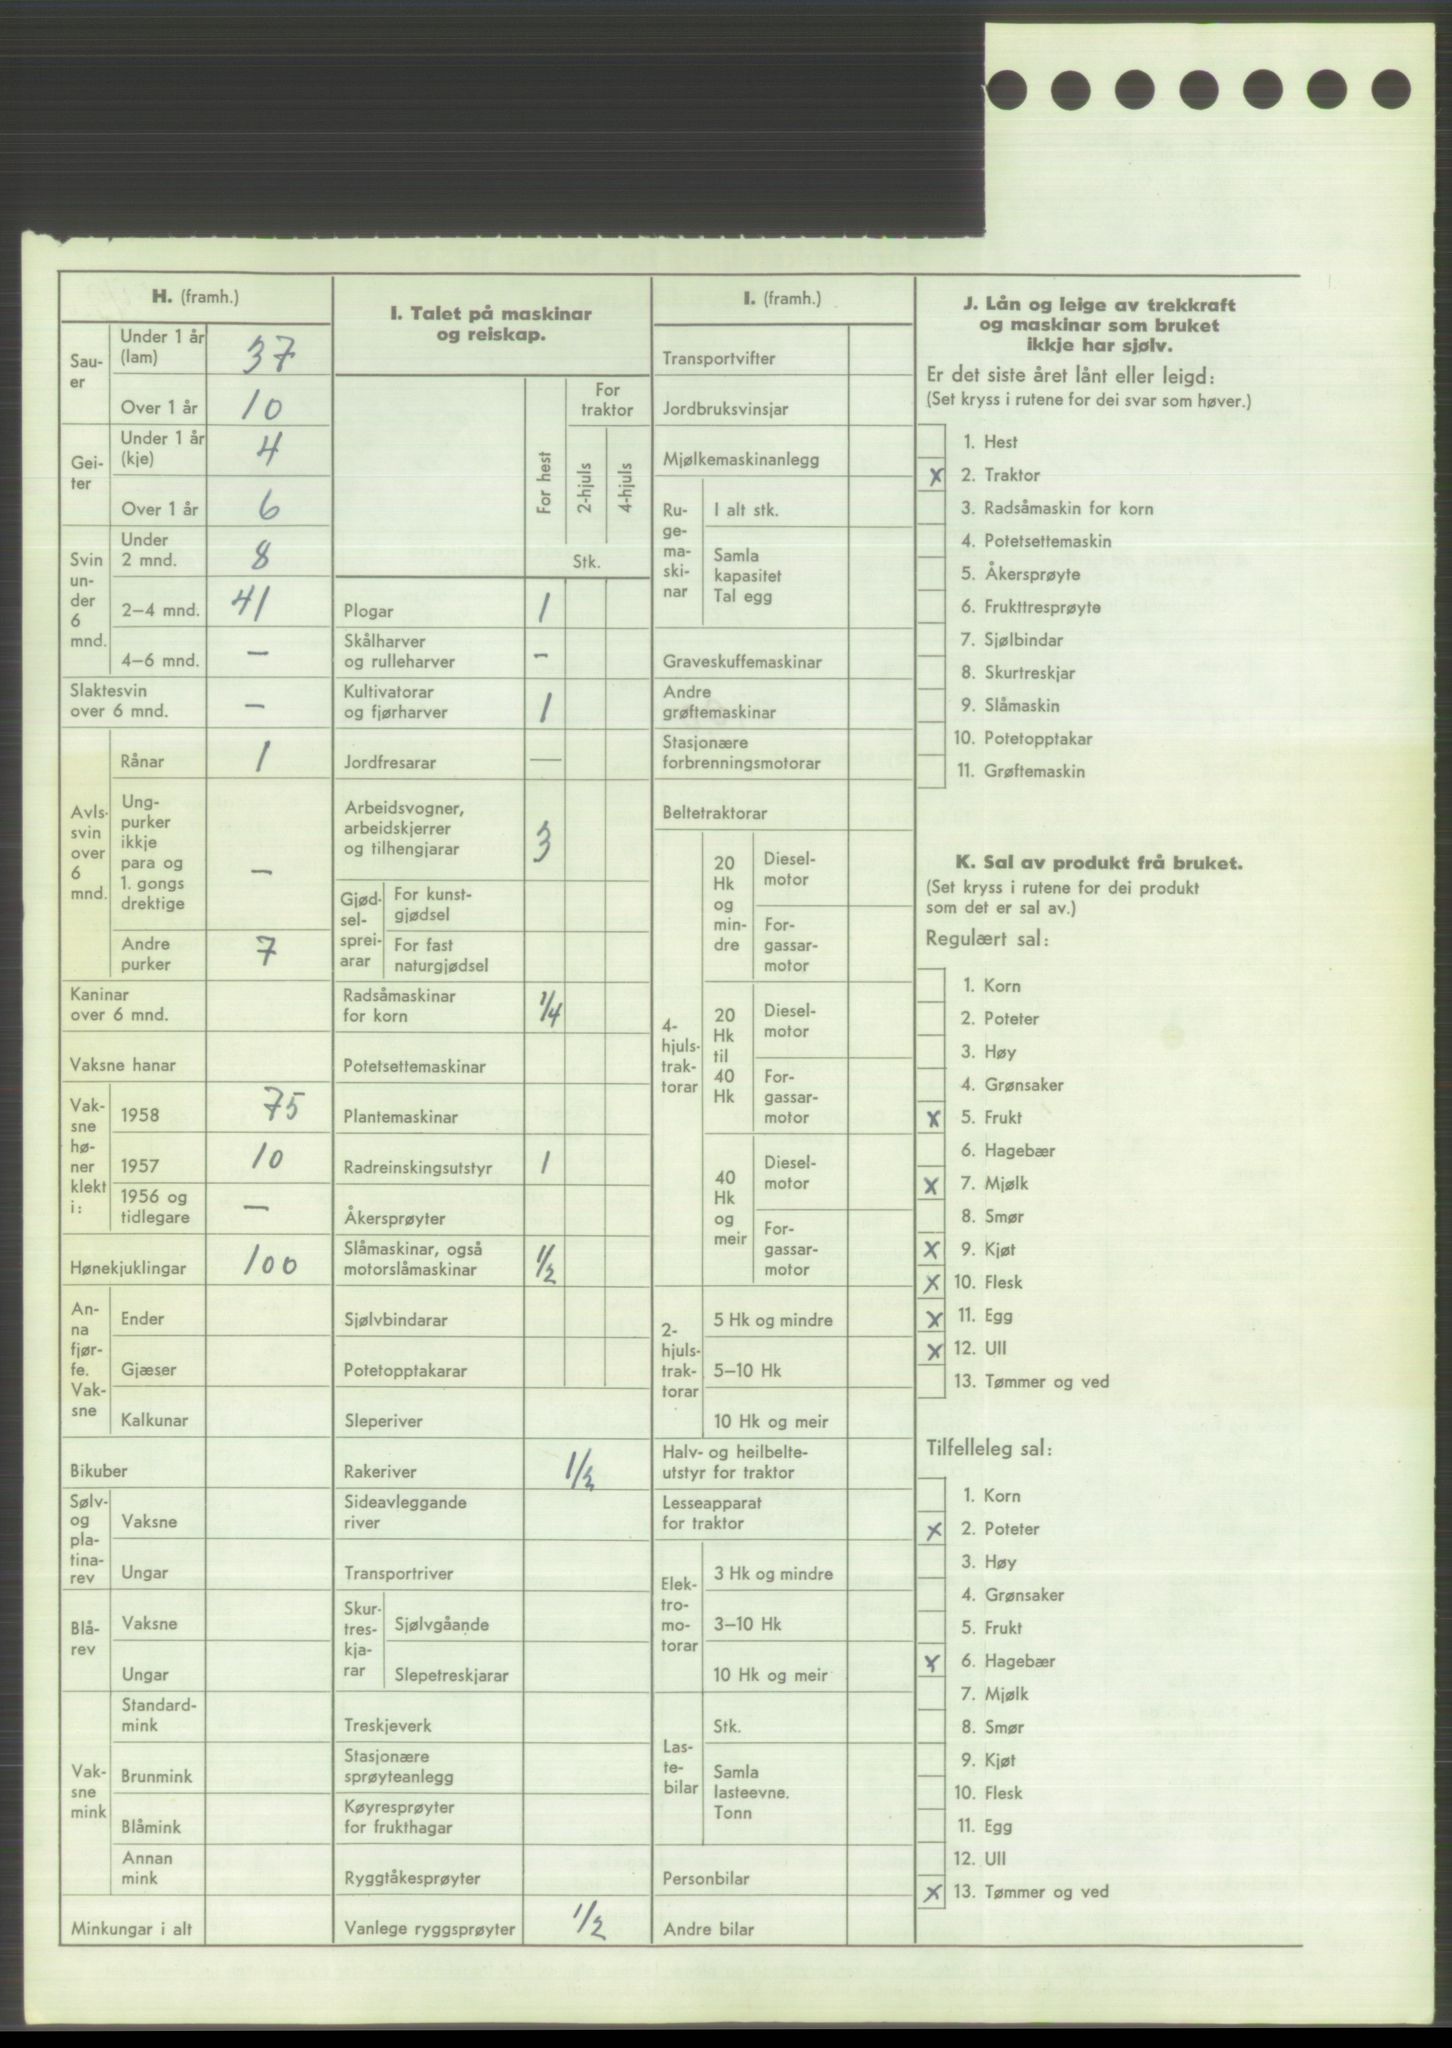 H. (framh.)
Sau-
er
Under 1 år
(lam)
37
Over 1 år
10
Gei-
ter
Under 1 år
(kje)
4
Over 1 år
6
Svin
un-
der
6
mnd.
Under
2 mnd.
8
2–4 mnd.
41
4–6 mnd.
—
Slaktesvin
over 6 mnd.
—
Avls-
svin
over
6
mnd.
Rånar
1
Ung-
purker
ikkje
para og
1. gongs
drektige
—
Andre
purker
7
Kaninar
over 6 mnd.
Vaksne hanar
Vak-
sne
hø-
ner
klekt
i:
1958
75
1957
10
1956 og
tidlegare
—
Hønekjuklingar
100
An-
na
fjør-
fe.
Vak-
sne
Ender
Gjæser
Kalkunar
Bikuber
Sølv-
og
pla-
tina-
rev
Vaksne
Ungar
Blå-
rev
Vaksne
Ungar
Vak-
sne
mink
Standard-
mink
Brunmink
Blåmink
Annan
mink
Minkungar i alt
I. Talet på maskinar
og reiskap.
For hest
For
traktor
2-hjuls
4-hjuls
Stk.
Plogar
1
Skålharver
og rulleharver
–
Kultivatorar
og fjørharver
1
Jordfresarar
—
Arbeidsvogner,
arbeidskjerrer
og tilhengjarar
3
Gjød-
sel-
sprei-
arar
For kunst-
gjødsel
For fast
naturgjødsel
Radsåmaskinar
for korn
1/4
Potetsettemaskinar
Plantemaskinar
Radreinskingsutstyr
1
Åkersprøyter
Slåmaskinar, også
motorslåmaskinar
1/2
Sjølvbindarar
Potetopptakarar
Sleperiver
Rakeriver
1/2
Sideavleggande
river
Transportriver
Skur-
tres-
kja-
rar
Sjølvgåande
Slepetreskjarar
Treskjeverk
Stasjonære
sprøyteanlegg
Køyresprøyter
for frukthagar
Ryggtåkesprøyter
Vanlege ryggsprøyter
1/2
I. (framh.)
Transportvifter
Jordbruksvinsjar
Mjølkemaskinanlegg
Ru-
ge-
ma-
ski-
nar
I alt stk.
Samla
kapasitet
Tal egg
Graveskuffemaskinar
Andre
grøftemaskinar
Stasjonære
forbrenningsmotorar
Beltetraktorar
4-
hjuls-
trak-
torar
20
Hk
og
min-
dre
Diesel-
motor
For-
gassar-
motor
20
Hk
til
40
Hk
Diesel-
motor
For-
gassar-
motor
40
Hk
og
meir
Diesel-
motor
For-
gassar-
motor
2-
hjuls-
trak-
torar
5 Hk og mindre
5–10 Hk
10 Hk og meir
Halv- og heilbelte-
utstyr for traktor
Lesseapparat
for traktor
Elek-
tro-
mo-
torar
3 Hk og mindre
3–10 Hk
10 Hk og meir
Las-
te-
bilar
Stk.
Samla
lasteevne.
Tonn
Personbilar
Andre bilar
J. Lån og leige av trekkraft
og maskinar som bruket
ikkje har sjølv.
Er det siste året lånt eller leigd:
(Set kryss i rutene for dei svar som høver.)
1. Hest
x 2. Traktor
3. Radsåmaskin for korn
4. Potetsettemaskin
5. Åkersprøyte
6. Frukttresprøyte
7. Sjølbindar
8. Skurtreskjar
9. Slåmaskin
10. Potetopptakar
11. Grøftemaskin
K. Sal av produkt frå bruket.
(Set kryss i rutene for dei produkt
som det er sal av.)
Regulært sal:
1. Korn
2. Poteter
3. Høy
4. Grønsaker
x 5. Frukt
6. Hagebær
x 7. Mjølk
8. Smør
x 9. Kjøt
x 10. Flesk
x 11. Egg
x 12. Ull
13. Tømmer og ved
Tilfelleleg sal:
1. Korn
x 2. Poteter
3. Høy
4. Grønsaker
5. Frukt
x 6. Hagebær
7. Mjølk
8. Smør
9. Kjøt
10. Flesk
11. Egg
12. Ull
x 13. Tømmer og ved